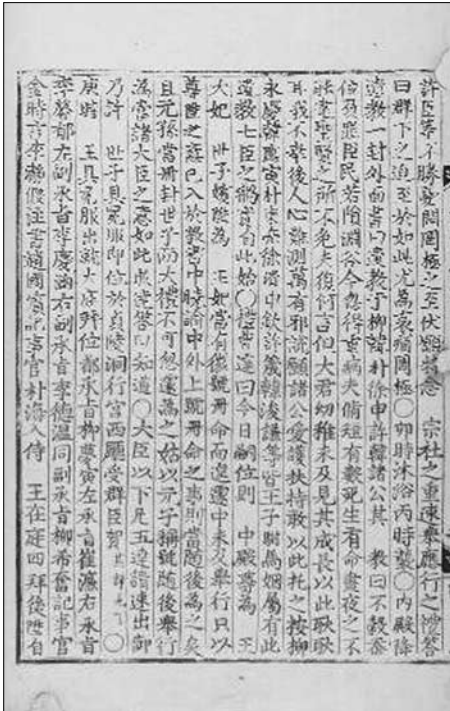 許臣等不勝憂悶罔極之至伏願持念　宗社之重速擧應行之禮答
曰群下之迫至於如此尤爲哀痛罔極○卯時沐浴丙時襲○內殿降
遺敎一封外面書曰遺敎于柳韓朴徐申許韓諸公其　敎曰不穀忝
位負罪臣民若隕淵谷今忽得重病夫脩短有數死生有命晝夜之不
能違聖賢之所不免夫復何言但大君幼稚未及見其成長以此耿耿
耳我不幸後人心難測萬有邪說願諸公愛護扶持敢以此托之按柳
永慶韓應寅朴東亮徐渻申欽許筬韓浚謙等皆王子駙馬姻屬有此
遺敎七臣之稱實自此始○禮曹達曰今日嗣位則　中殿尊爲　王
大妃　世子嬪陞爲　王妃當有徽號冊命而遑遽中未及擧行只以
尊陞之意已入於敎書中曉諭中外上號冊命之事則當隨後爲之矣
且元孫當冊封世子而大禮不可怱遽爲之姑以元子稱號隨後擧行
爲當諸大臣之意如此敢達答曰知道○大臣以下凡五達請速出御
乃許　世子具冕服卽位於貞陵洞行宮西廳受群臣賀○
庚時　王具冕服出就大庭拜位都承旨柳夢寅左承旨崔濂右承旨
李馨郁左副承旨李慶涵右副承旨李德溫同副承旨柳希奮記事官
金時言李灝假注書趙國賓記事官朴海入侍　王在庭四拜後陞自